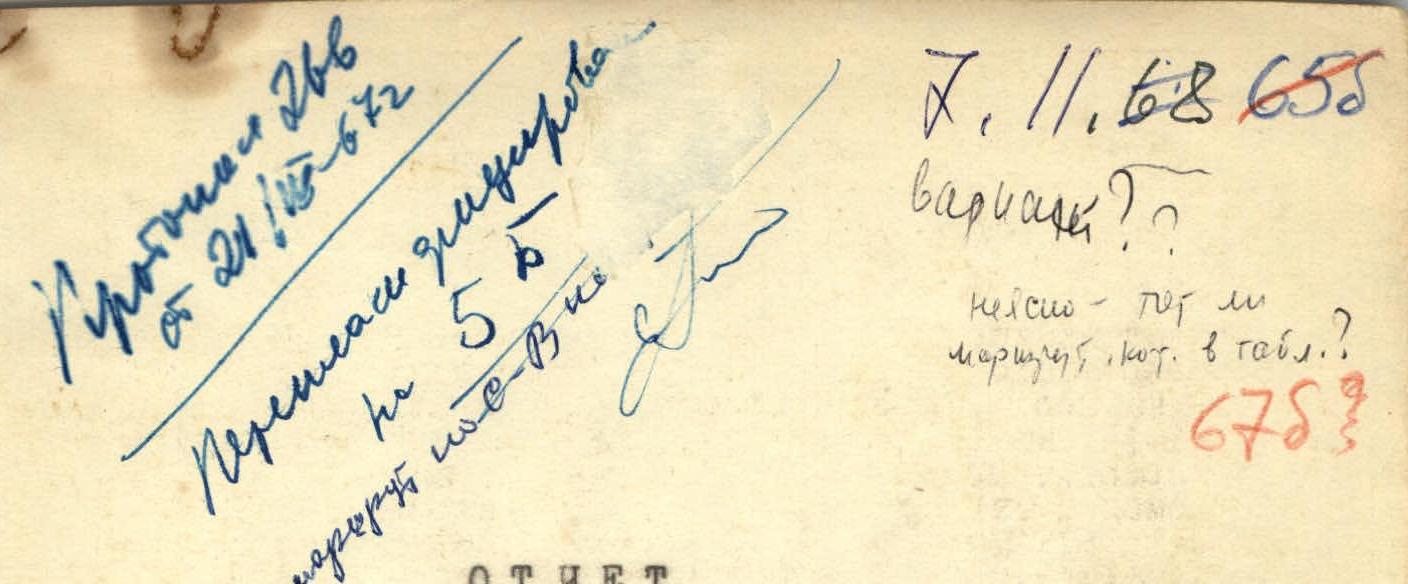 Протокол 266
от 21/III-67г
на
5 Б
маршрут по С-В
7.11.68 65б
вариант??
неясно - тот ли
маршрут, кот. в табл.?
67б?
ОТЧЕТ